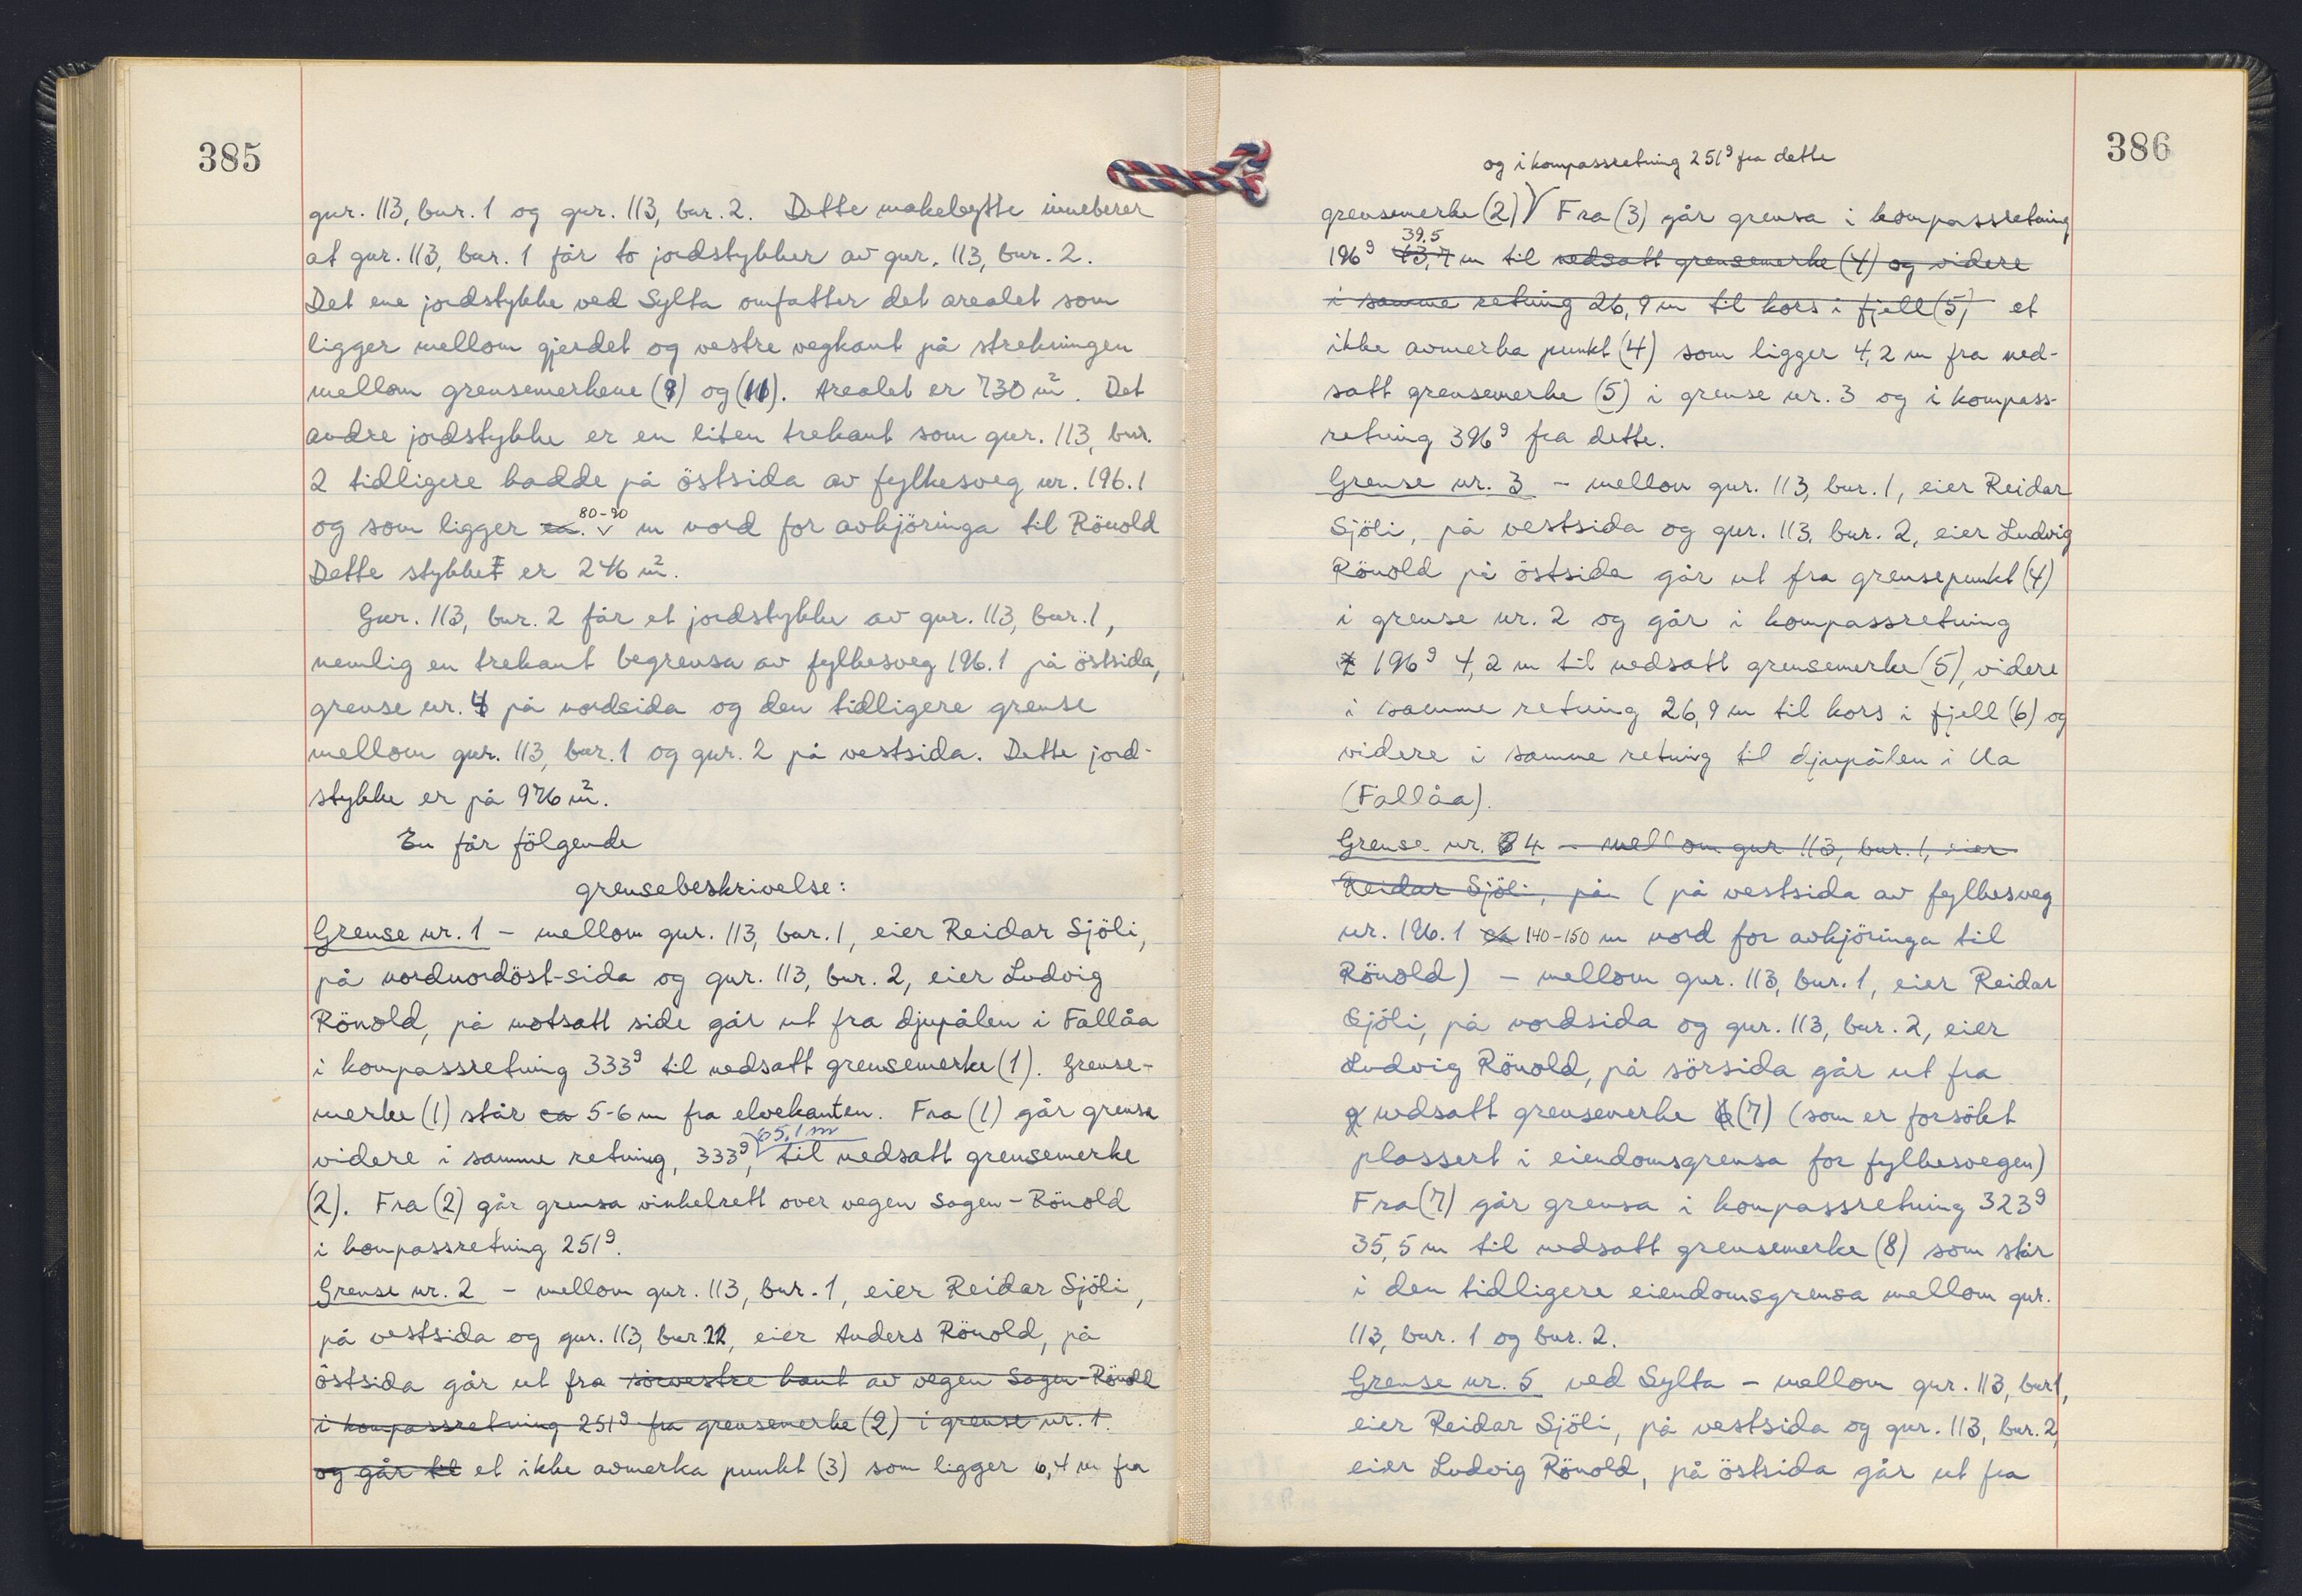 385
gnr. 113, bnr. 1 og gnr. 113, bnr. 2. Dette makebytte inneberer
at gnr. 113, bnr. 1 får to jordstykker av gnr. 113, bnr. 2.
Det ene jordstykke ved Sylta omfatter det arealet som
ligger mellom gjerdet og vestre vegkant på strekningen
mellom grensemerkene (9) og (11). Arealet er 730 m². Det
andre jordstykke er en liten trekant som gnr. 113, bnr.
2 tidligere hadde på östsida av fylkesveg nr. 196.1
og som ligger ca. 80-90 m nord for avkjöringa til Rönold
Dette stykket er 246 m².
Gnr. 113, bnr. 2 får et jordstykke av gnr. 113, bnr. 1,
nemlig en trekant begrensa av fylkesveg 196.1 på östsida,
grense nr. 4 på nordsida og den tidligere grense
mellom gnr. 113, bnr. 1 og gnr. 2 på vestsida. Dette jord-
stykke er på 976 m².
En får fölgende
grensebeskrivelse:
Grense nr. 1 - mellom gnr. 113, bnr. 1, eier Reidar Sjöli,
på nordnordöst-sida og gnr. 113, bnr. 2, eier Ludvig
Rönold, på motsatt side går ut fra djupålen i Fallåa
i kompassretning 333g til nedsatt grensemerke (1). Grense-
merke (1) står ca 5-6 m fra elvekanten. Fra (1) går grensa
videre i samme retning, 333g, 65,1 m til nedsatt grensemerke
(2). Fra (2) går grensa vinkelrett over vegen Sagen - Rönold
i kompassretning 251g.
Grense nr. 2 - mellom gnr. 113, bnr. 1, eier Reidar Sjöli,
på vestsida og gnr. 113, bnr. 22, eier Anders Rönold, på
östsida går ut fra sörvestre kant av vegen Sagen-Rönold
i kompassretning 251g fra grensemerke (2) i grense nr. 1.
og går til et ikke avmerka punkt (3) som ligger 6,4 m fra
386
og i kompassretning 251g fra dette
grensemerke (2) V Fra (3) går grensa i kompassretning
196g 43,7 39.5 m til nedsatt grensemerke (4) og videre
i samme retning 26,9 m til kors i fjell (5) et
ikke avmerka punkt (4) som ligger 4,2 m fra ned-
satt grensemerke (5) i grense nr. 3 og i kompass-
retning 396g fra dette.
Grense nr. 3 - mellom gnr. 113, bnr. 1, eier Reidar
Sjöli, på vestsida og gnr. 113, bnr. 2, eier Ludvig
Rönold på östsida går ut fra grensepunkt (4)
i grense nr. 2 og går i kompassretning
196g 4,2 m til nedsatt grensemerke (5), videre
i samme retning 26,9 m til kors i fjell (6) og
videre i samme retning til djupålen i Ua
(Fallåa).
Grense nr. 4 - mellom gnr 113, bnr. 1, eier
Reidar Sjöli, på (på vestsida av fylkesveg
nr. 196.1 ca 140-150 m nord for avkjöringa til
Rönold) - mellom gnr. 113, bnr. 1, eier Reidar
Sjöli, på nordsida og gnr. 113, bnr. 2, eier
Ludvig Rönold, på sörsida går ut fra
g nedsatt grensemerke (7) (som er forsökt
plassert i eiendomsgrensa for fylkesvegen)
Fra (7) går grensa i kompassretning 323g
35,5 m til nedsatt grensemerke (8) som står
i den tidligere eiendomsgrensa mellom gnr.
113, bnr. 1 og bnr. 2.
Grense nr. 5 ved Sylta - mellom gnr. 113, bnr 1,
eier Reidar Sjöli, på vestsida og gnr. 113, bnr. 2,
eier Ludvig Rönold, på östsida går ut fra